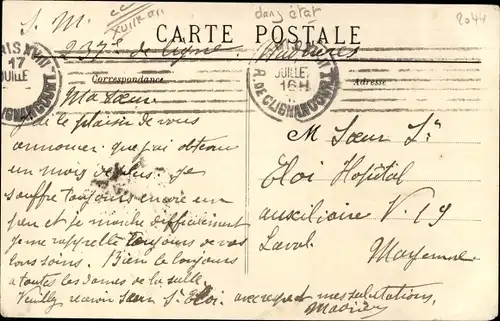 S. M.
CARTE POSTALE
dans état
2044
237e de ligne
Correspondance
Adresse
PARIS XVIII
17
JUILLET
R. DE CLIGNANCOURT
JUILLET
16H
R. DE CLIGNANCOURT
Ma Sœur
J'ai le plaisir de vous
annoncer que j'ai obtenu
un mois de plus. Je
souffre toujours encore un
peu et je marche difficilement
Je me rappelle toujours de vos
bons soins. Bien le bonjour
a toutes les dames de la salle
Veuillez recevoir Sœur St Eloi, avec respect mes salutations,
M Sœur St
Eloi Hopital
auxiliaire V. 19
Laval
Mayenne